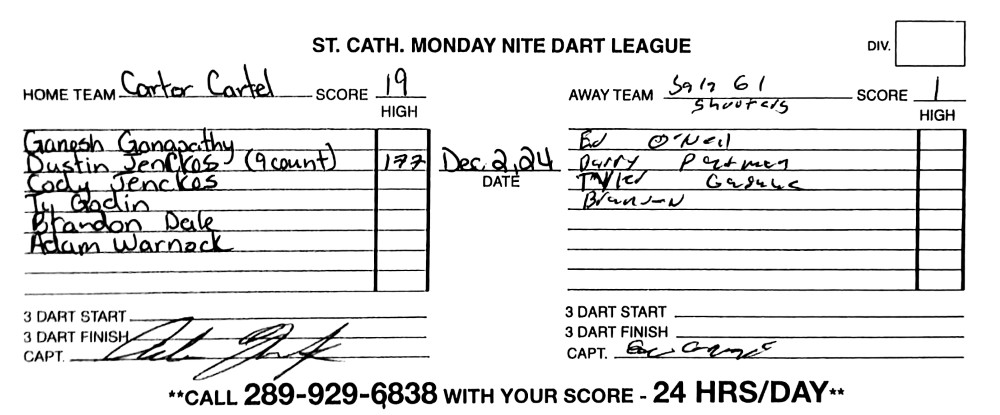 ST. CATH. MONDAY NITE DART LEAGUE
DIV.
HOME TEAM Cartor Cartel SCORE 19
HIGH
AWAY TEAM Saln 61 Shooters SCORE 1
HIGH
Ganesh Ganapathy
Dustin Jenckos (9 count) 177
Cody Jenckos
Ty Godin
Brandon Dale
Adam Warnock
Dec. 2, 24
DATE
Ed O'Neil
Darry
3 DART START
3 DART FINISH
CAPT.
3 DART START
3 DART FINISH
CAPT.
**CALL 289-929-6838 WITH YOUR SCORE - 24 HRS/DAY**